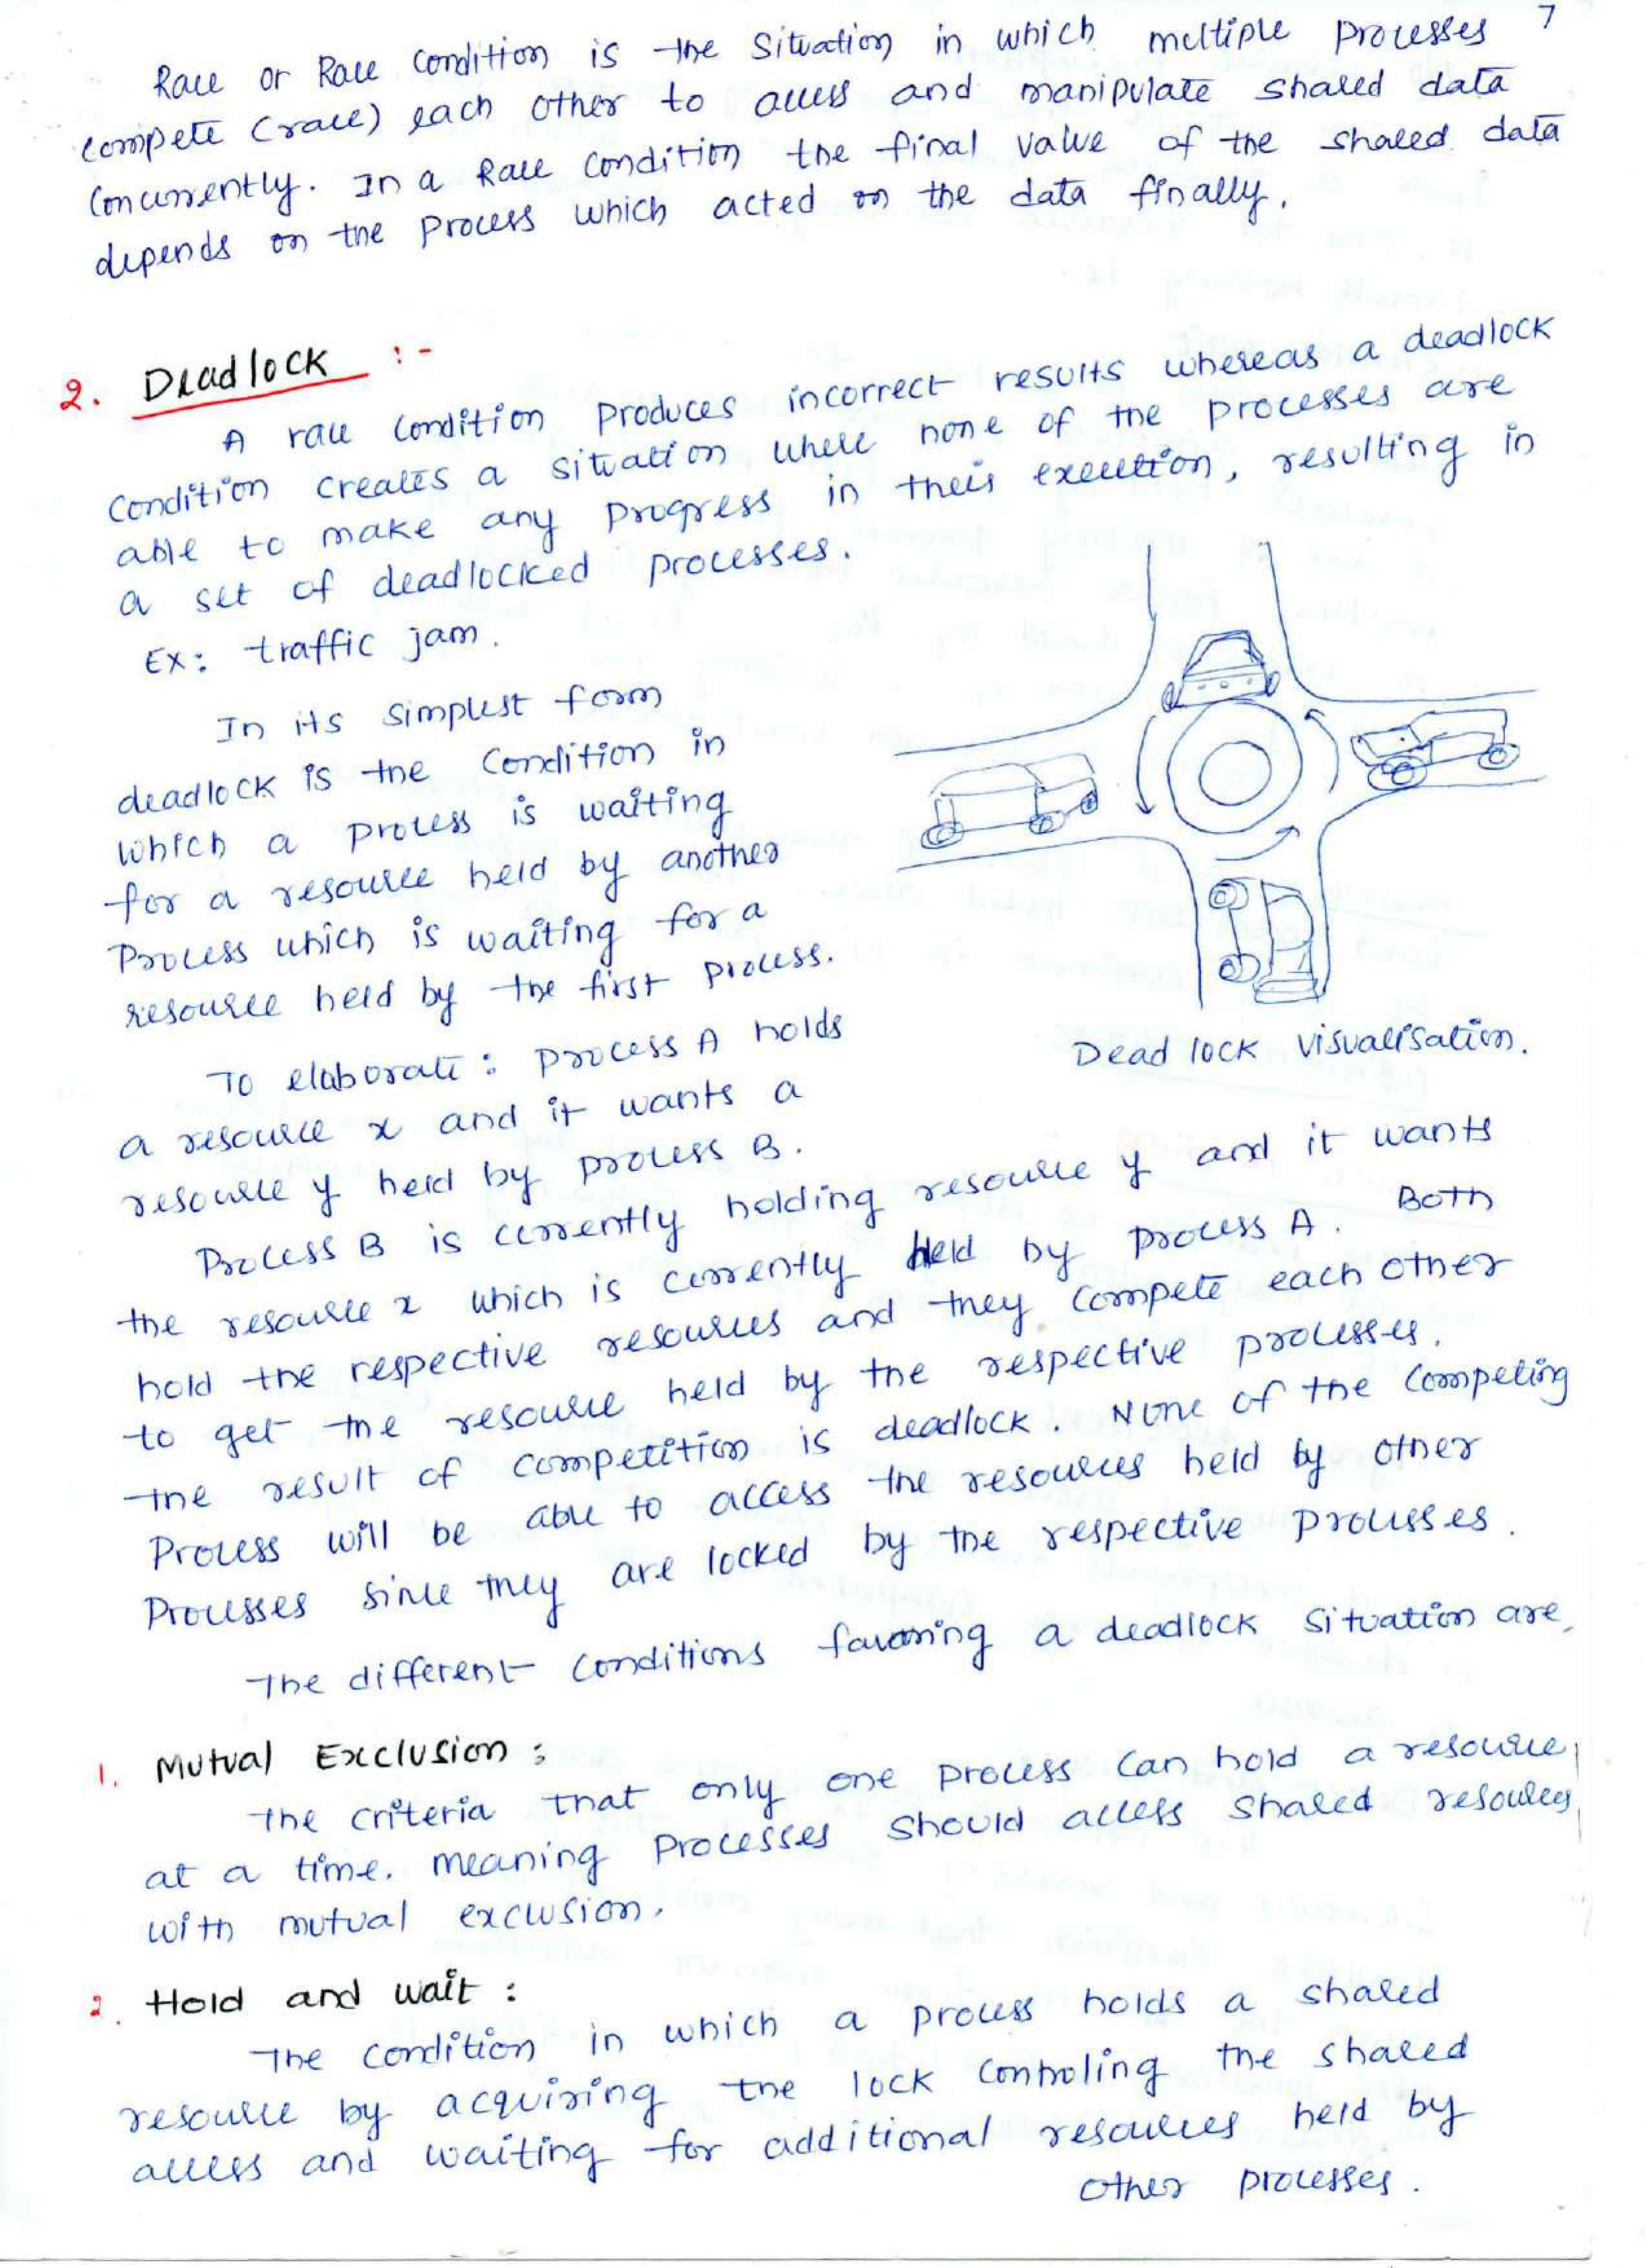 7
Race or Race condition is the situation in which multiple processes
compete (race) each other to access and manipulate shared data
concurrently. In a Race condition the final value of the shared data
depends on the process which acted on the data finally.
2. Deadlock :-
A race condition produces incorrect results whereas a deadlock
condition creates a situation where none of the processes are
able to make any progress in their execution, resulting in
a set of deadlocked processes.
Ex: traffic jam.
In its simplest form
deadlock is the condition in
which a process is waiting
for a resource held by another
process which is waiting for a
resource held by the first process.
Dead lock visualisation.
To elaborate: process A holds
a resource x and it wants a
resource y held by process B.
Process B is currently holding resource y and it wants
the resource x which is currently held by process A. Both
hold the respective resources and they compete each other
to get the resource held by the respective processes.
the result of competition is deadlock. None of the competing
process will be able to access the resources held by other
processes since they are locked by the respective processes.
The different conditions favoring a deadlock situation are,
1. Mutual Exclusion :
The criteria that only one process can hold a resource
at a time. meaning processes should access shared resources
with mutual exclusion.
2. Hold and wait :
The condition in which a process holds a shared
resource by acquiring the lock controling the shared
access and waiting for additional resources held by
other processes.